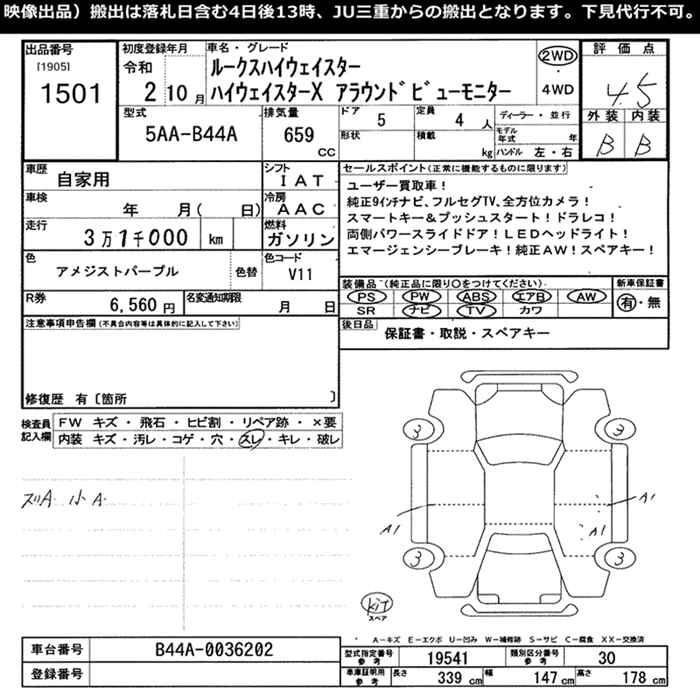 映像出品）搬出は落札日含む4日後13時、JU三重からの搬出となります。下見代行不可。
出品番号
[1905]
1501
初度登録年月
令和
2 10 月
車名・グレード
ルークスハイウェイスター
ハイウェイスターX アラウンドビューモニター
2WD
4WD
評価点
4.5
外装 内装
B B
型式
5AA-B44A
排気量
659
CC
ドア
5
定員
4 人
形状
積載
kg
ディーラー・並行
モデル年式 年
ハンドル 左・右
車歴
自家用
シフト
IAT
車検
年 月( 日)
冷房
AAC
走行
3万1千000 km
燃料
ガソリン
色
アメジストパープル
色替
色コード
V11
R券
6,560 円
名変通知期限
月 日
セールスポイント(正常に機能するものに限ります)
ユーザー買取車！
純正9インチナビ、フルセグTV、全方位カメラ！
スマートキー＆プッシュスタート！ドラレコ！
両側パワースライドドア！LEDヘッドライト！
エマージェンシーブレーキ！純正AW！スペアキー！
装備品(純正品に限り○をつけてください)
PS PW ABS エアB AW
SR ナビ TV カワ
新車保証書
有・無
後日品
保証書・取説・スペアキー
注意事項申告欄(不具合内容等は具体的に記入して下さい)
修復歴 有〔箇所 〕
検査員記入欄
FW キズ・飛石・ヒビ割・リペア跡・×要
内装 キズ・汚レ・コゲ・穴・スレ・キレ・破レ
スリA 小A
3
3
A1
A1
A1
3
3
kit
スペア
A－キズ E－エクボ U－凹み W－補修跡 S－サビ C－腐食 XX－交換済
車台番号
B44A-0036202
登録番号
型式指定番号
参考
19541
類別区分番号
参考
30
車庫証明用
参考
長さ
339 cm
幅
147 cm
高さ
178 cm